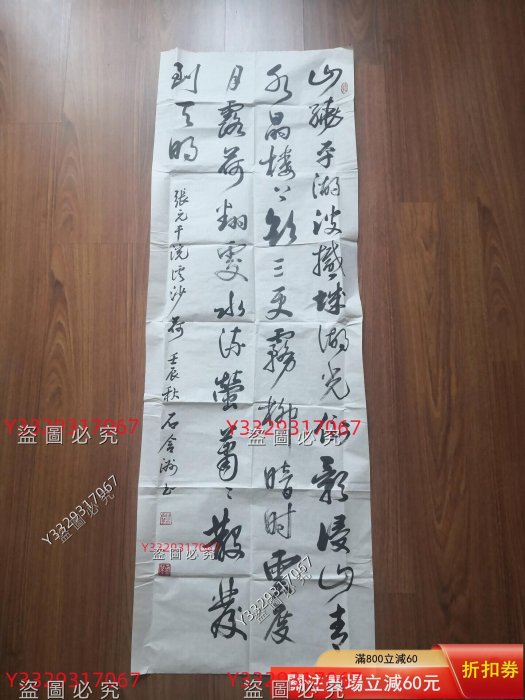 山繞平湖波撼城湖光倒影浸山青
水晶楼下欲三更霧柳暗时雲度
月露荷翻處水流螢蕭〻散發
到天明
張元干浣溪沙 荷 壬辰秋 石含洲书
Y3329317067
盜圖必究
Y3329317067
盜圖必究
Y3329317067
盜圖必究
Y3329317067
盜圖必究
Y3329317067
盜圖必究
Y3329317067
盜圖必究
盜圖必究
盜圖必究
滿800立減60
關注賣場立減60元
折扣券